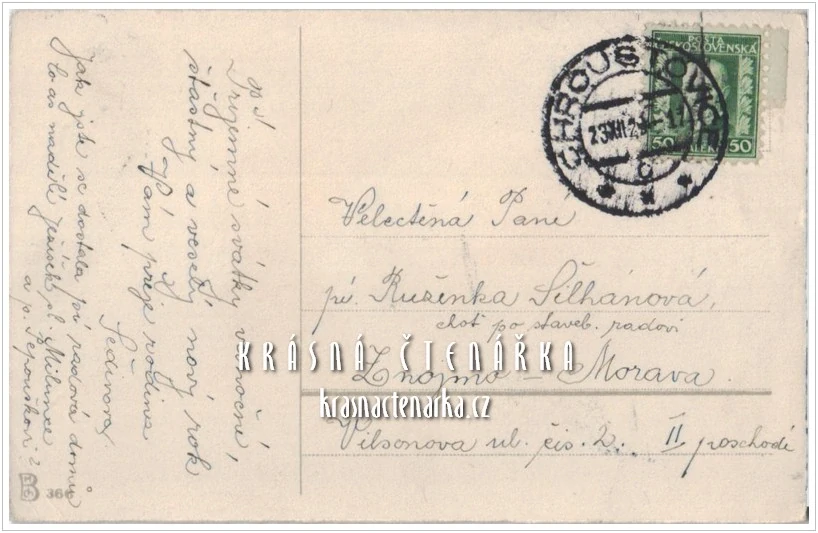 P. T.
Příjemné svátky vánoční,
šťastný a veselý nový rok
Vám přeje rodina
Šedinova
Jak jste se dostala pí radová domů
to as nadělí Ježíšek sl. Milunce
a p. Pepouškovi?
B 366
POŠTA
ČESKOSLOVENSKÁ
50 HALÉŘŮ 50
CHROUSTOVICE
23.XII.
c
Velectěná Paní
pí. Růženka Šilhánová,
choť po staveb. radovi
Znojmo – Morava.
Vilsonova ul. čís. 2. II poschodí
KRÁSNÁ ČTENÁŘKA
krasnactenarka.cz